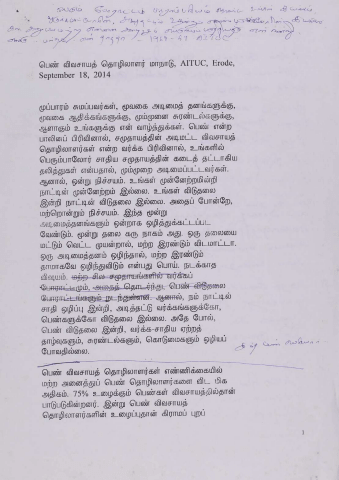 பெண் விவசாயத் தொழிலாளர் மாநாடு, AITUC, Erode,
September 18, 2014
முப்பாரம் சுமப்பவர்கள், மூவகை அடிமைத் தனங்களுக்கு,
மூவகை ஆதிக்கங்களுக்கு, மும்முனை சுரண்டல்களுக்கு,
ஆளாகும் உங்களுக்கு என் வாழ்த்துக்கள். பெண் என்ற
பாலினப் பிரிவினால், சமுதாயத்தின் அடிமட்ட விவசாயத்
தொழிலாளர்கள் என்ற வர்க்க பிரிவினால், உங்களில்
பெரும்பாலோர் சாதிய சமுதாயத்தின் கடைத் தட்டாகிய
தலித்துகள் என்பதால், மும்முறை அடிமைப்பட்டவர்கள்.
ஆனால், ஒன்று நிச்சயம். உங்கள் முன்னேற்றமின்றி
நாட்டின் முன்னேற்றம் இல்லை. உங்கள் விடுதலை
இன்றி நாட்டின் விடுதலை இல்லை. அதைப் போன்றே,
மற்றொன்றும் நிச்சயம். இந்த மூன்று
அடிமைத்தனங்களும் ஒன்றாக ஒழித்துக்கட்டப்பட
வேண்டும். மூன்று தலை கரு நாகம் அது. ஒரு தலையை
மட்டும் வெட்ட முயன்றால், மற்ற இரண்டும் விடமாட்டா.
ஒரு அடிமைத்தனம் ஒழிந்தால், மற்ற இரண்டும்
தாமாகவே ஒழிந்துவிடும் என்பது பொய். நடக்காத
விஷயம். மற்ற சில சமுதாயங்களில் வர்க்கப்
போராட்டமும், அதைத் தொடர்ந்து பெண் விடுதலை
போராட்டங்களும் நடந்துள்ளன. ஆனால், நம் நாட்டில்
சாதி ஒழிப்பு இன்றி, அடித்தட்டு வர்க்கங்களுக்கோ,
பெண்களுக்கோ விடுதலை இல்லை. அதே போல்,
பெண் விடுதலை இன்றி, வர்க்க-சாதிய ஏற்றத்
தாழ்வுகளும், சுரண்டல்களும், கொடுமைகளும் ஒழியப்
போவதில்லை.
பெண் விவசாயத் தொழிலாளர்கள் எண்ணிக்கையில்
மற்ற அனைத்துப் பெண் தொழிலாளர்களை விட மிக
அதிகம். 75% உழைக்கும் பெண்கள் விவசாயத்தில்தான்
பாடுபடுகின்றனர். இன்று பெண் விவசாயத்
தொழிலாளர்களின் உழைப்புதான் கிராமப் புறப்
1